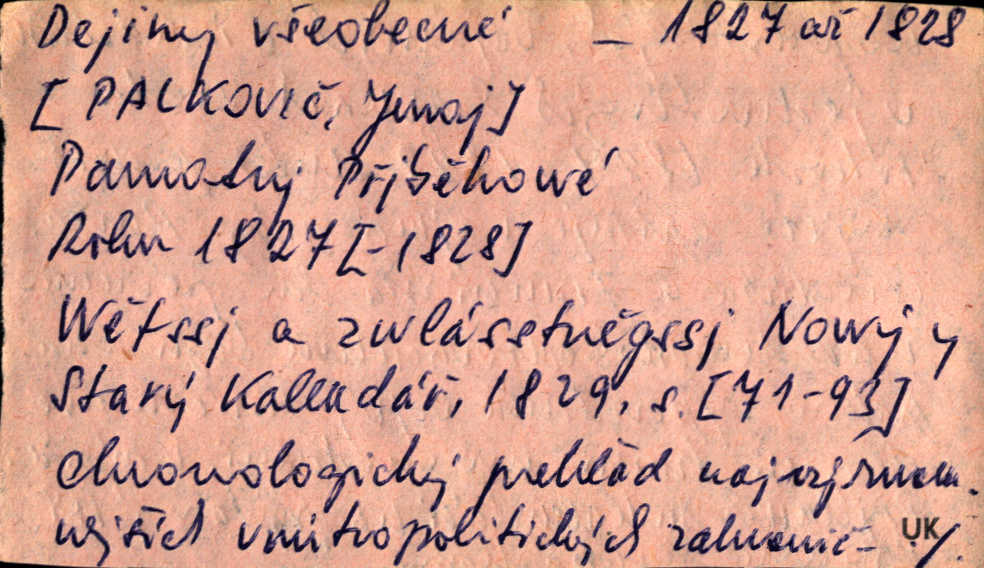 Dejiny všeobecné – 1827 až 1828
[PALKOVIČ, Juraj]
Pamatnj Přjběhowé
Roku 1827[-1828]
Wětssj a zwlásstněgssj Nowý y
Starý Kalendář, 1829, s. [71-93]
chronologický prehľad najvýznam-
nejších vnútropolitických zahranič- ./.
UK